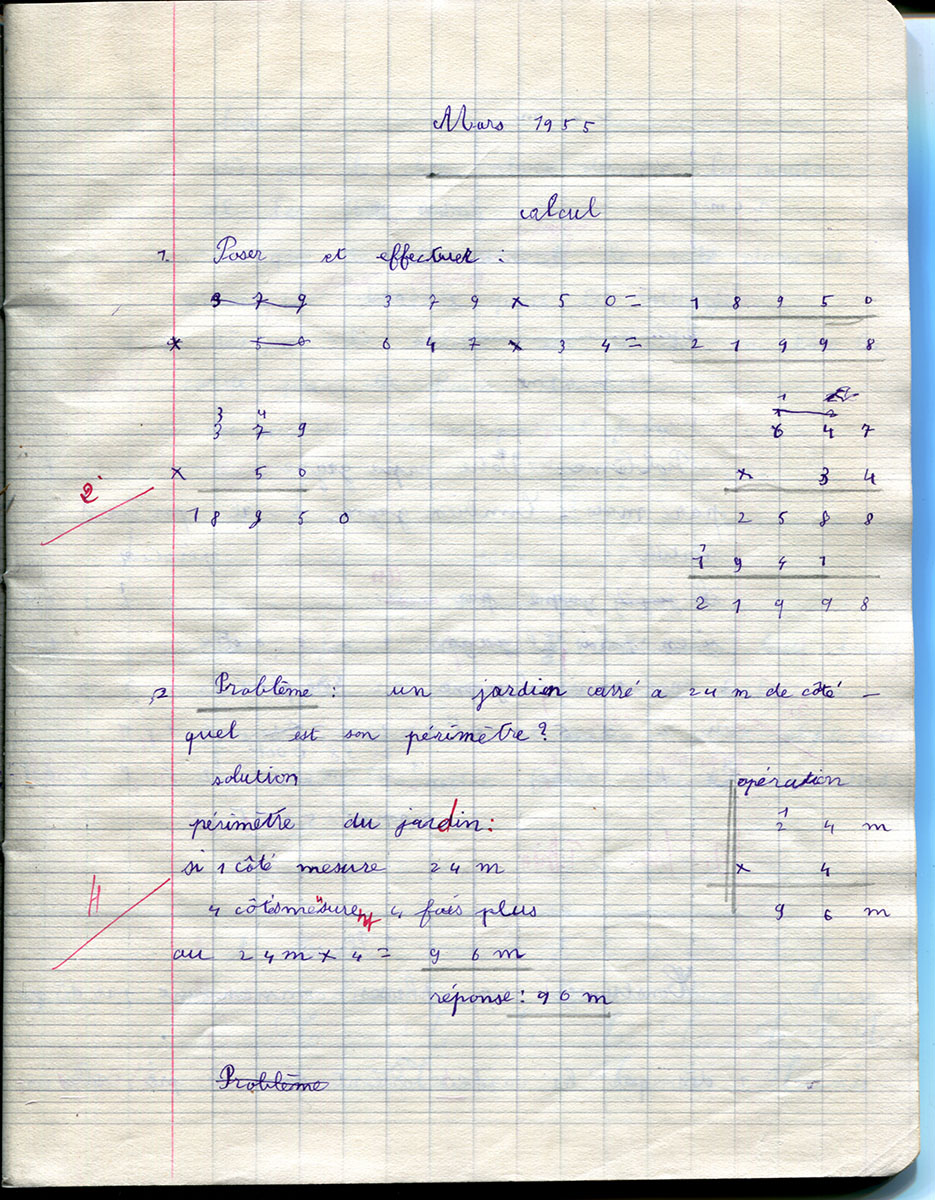 Mars 1955
calcul
1. Poser et effectuer :
379 379 x 50 = 18950
x 50 647 x 34 = 21998
3 4
379
x 50
18950
2
1
1 2
647
x 34
2588
1
1941
21998
2 Problème : un jardien carré a 24 m de côté –
quel est son périmètre ?
solution
opération
périmètre du jardin :
1
24 m
si 1 côté mesure 24 m
x 4
4
4 côtés mesurent 4 fois plus
96 m
ou 24 m x 4 = 96 m
réponse : 96 m
Problème